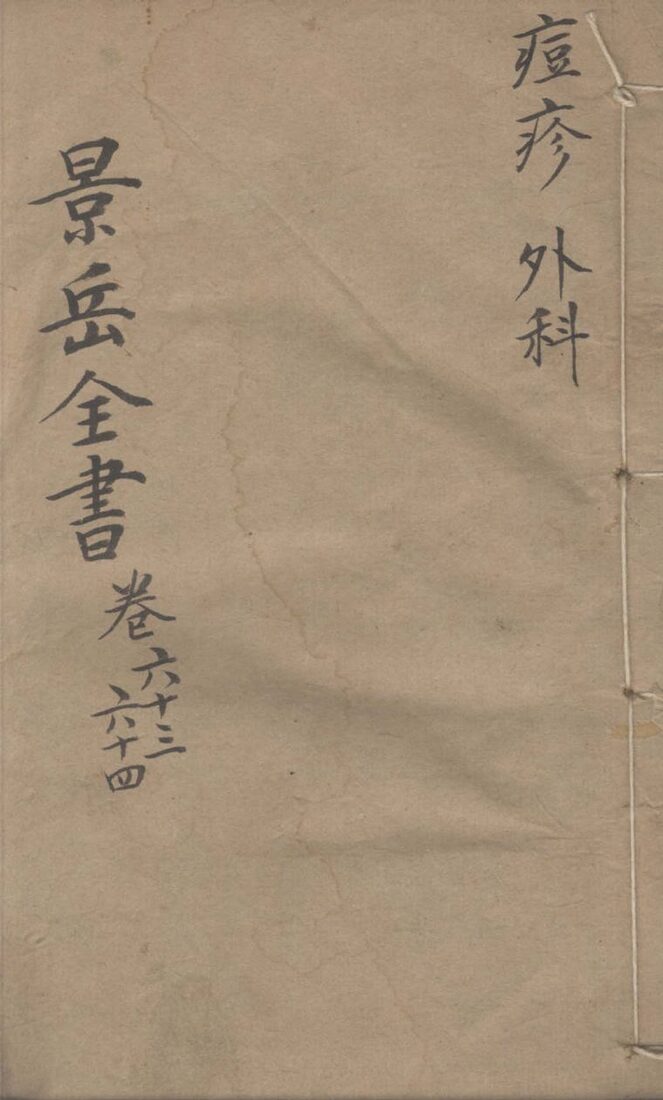 痘疹 外科
景岳全書 卷 六十三
六十四